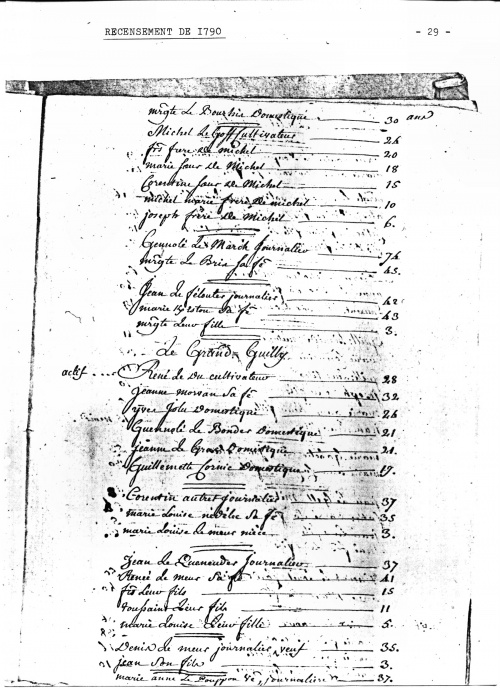 RECENSEMENT DE 1790 - 29 -
mgte Le Bourhis Domestique 30 ans
Michel Le Goff cultivateur 26
frs frere de michel 20
marie sœur de Michel 18
Corentine sœur de Michel 15
michel marie frere de michel 10
joseph frere de Michel 6.
Guenolé Le March journalier 74
mgte Le Bris sa fe 45.
Jean Le journalier 42
marie sa fe 43
mgte leur fille 3.
Le Grand Guilly
actif René Le Du cultivateur 28
jeanne morvan sa fe 32
yves Domestique 26
Guennolé Le Domestique 21
jeanne Le Domestique 21.
Guillemette Cornic Domestique 17.
Corentin autret journalier 37
marie louise sa fe 35
marie louise Le meur niece 3.
Jean Le journalier 37
Renée Le meur sa fe 41
frs leur fils 15
toussaint leur fils 11
marie louise leur fille 5.
Denis Le meur journalier, veuf 35.
jean son fils 3.
marie anne Le ve, journaliere 37.